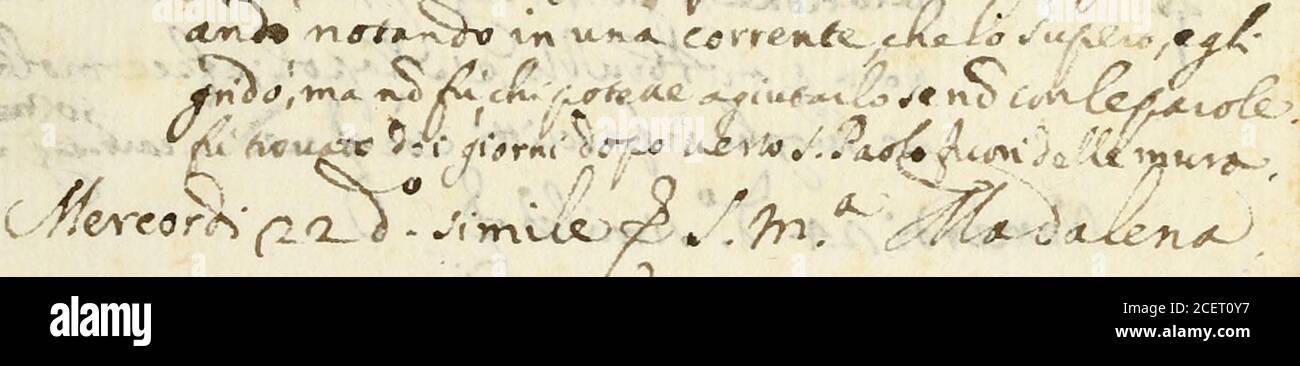 andò notando in una corrente, che lo superò, egli
gridò, ma nõ fù, chi poteue agiutarlo se nõ con le parole.
fù trouato doi giorni dopo uerso S. Paolo fuori delle mura.
Mercordi 22 d.º simile p S. M.ª Madalena.
alamy
Image ID: 2CET0Y7
www.alamy.com